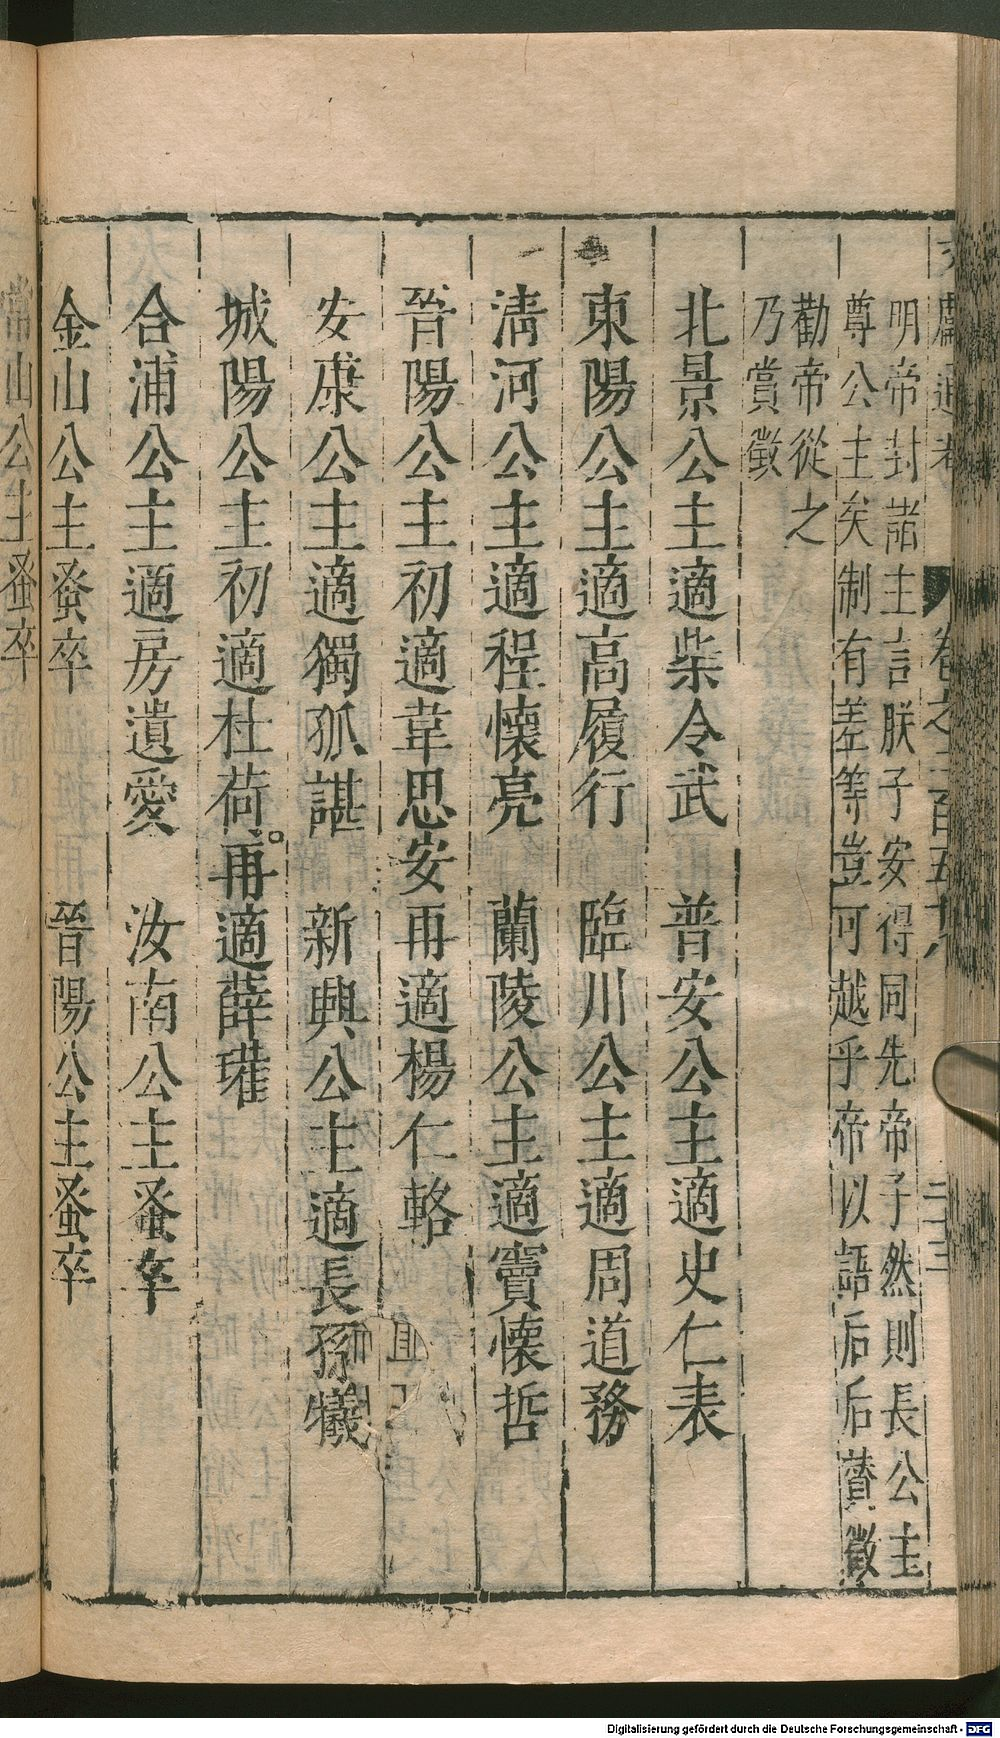 文獻通考 卷之二百五十八 二十三
明帝封諸主言朕子安得同先帝子然則長公主
尊公主矣制有差等豈可越乎帝以語后后賛徵
勸帝從之
乃賞徵
北景公主適柴令武 普安公主適史仁表
東陽公主適高履行 臨川公主適周道務
清河公主適程懷亮 蘭陵公主適竇懷哲
晉陽公主初適韋思安再適楊仁輅
安康公主適獨孤諶 新興公主適長孫曦
城陽公主初適杜荷。再適薛瓘
合浦公主適房遺愛 汝南公主蚤卒
金山公主蚤卒 晉陽公主蚤卒
常山公主蚤卒
Digitalisierung gefördert durch die Deutsche Forschungsgemeinschaft - DFG